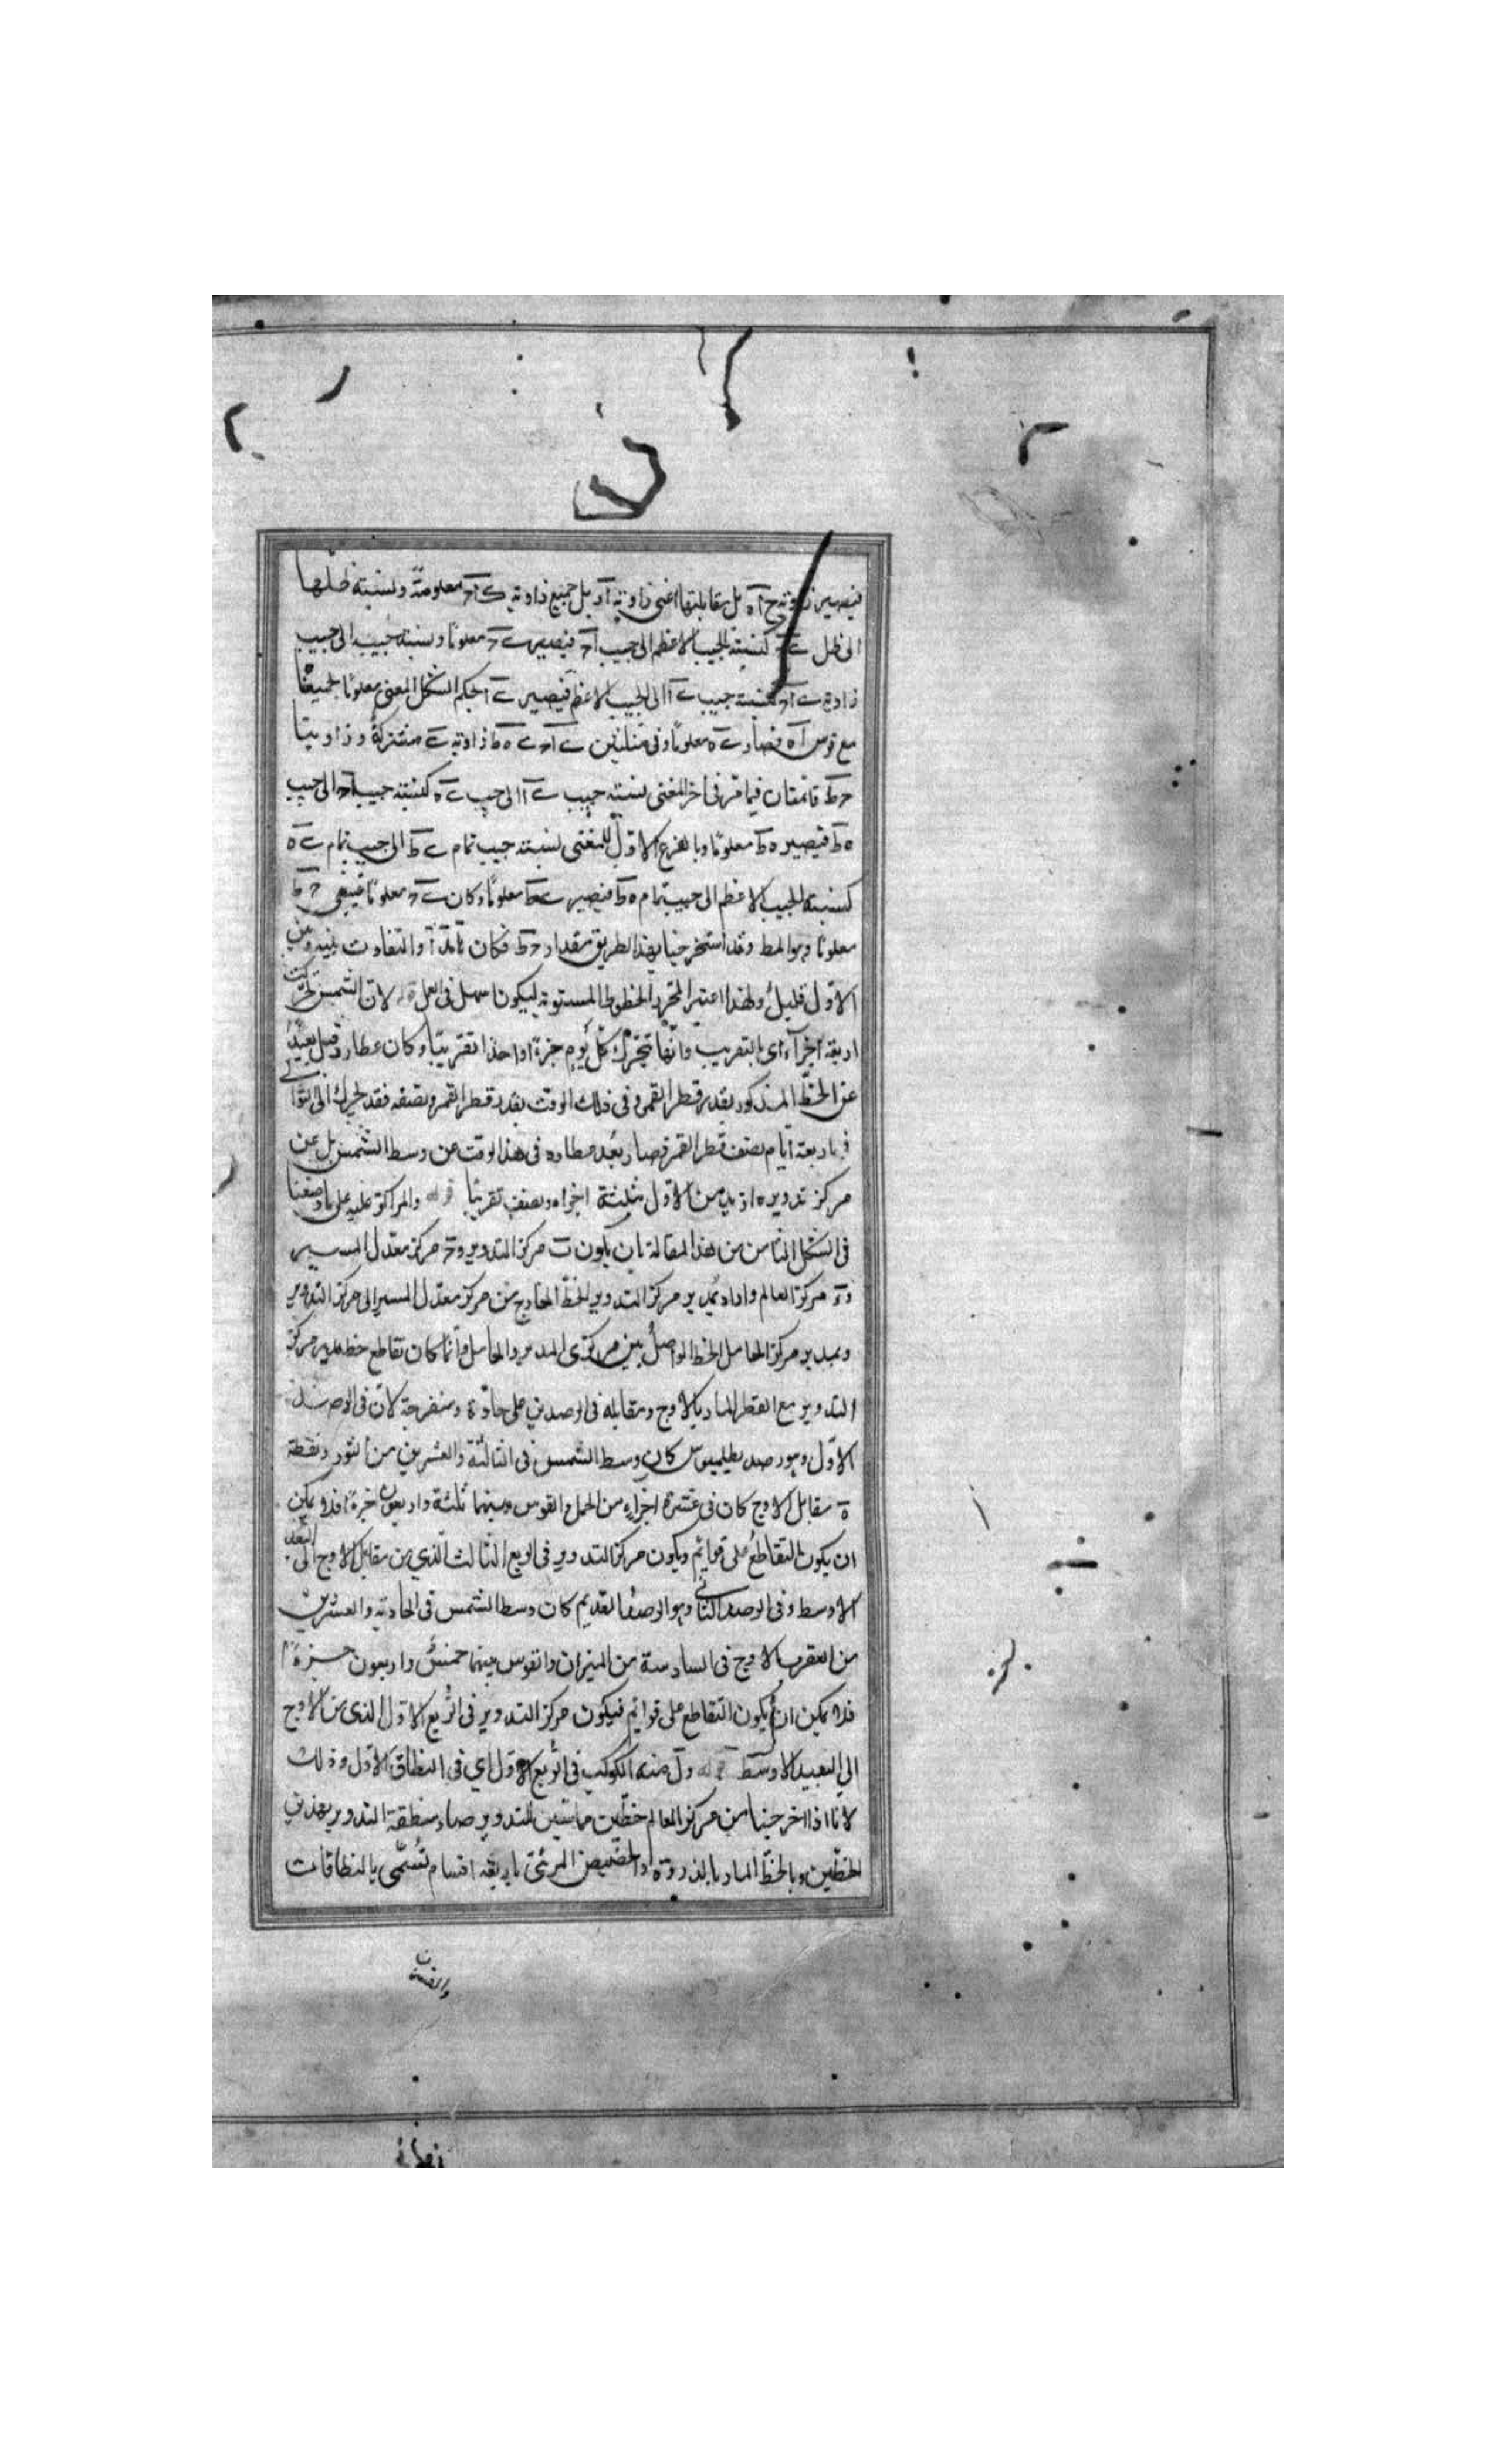 فيصير زاوية ح آ ه بل مقابلتها اعنى زاوية بل جميع زاوية معلومة ونسبة ظلها
الى ظل كنسبة الجيب الاعظم الى جيب فيصير معلومًا ونسبة جيبه الى جيب
زاوية كنسبة جيب الى الجيب الاعظم فيصير بحكم الشكل المغنى معلومًا لجميعًا
مع قوس آه فصار معلومًا وفى مثلثين زاوية مشتركة وزاويتا
ح ط قائمتان فيما مر فى اخر المغنى نسبة جيب الى جيب كنسبة جيب الى جيب
ه ط فيصير ه ط معلومًا وبالفرع الاول للمغنى نسبة جيب تمام ى ط الى جيب تمام ى ه
كنسبة الجيب الاعظم الى جيب تمام ه ط فيصير ى ط معلومًا وكان ى ح معلومًا فيبقى ح ط
معلومًا وهو المط وقد استخرجنا بهذا الطريق مقدار ح ط فكان والتفاوت بينه وبين
الاول قليل ولهذا اعتبر المحرر الخطوط المستوية ليكون اسهل فى العمل قوله لان الشمس تحركت
اربعة اجزآء اى بالتقريب وانها تتحرك كل يوم جزءًا واحدًا تقريبًا وكان عطارد قبل بعيدًا
عن الخط المذكور بقدر قطر القمر وفى ذلك الوقت بقدر قطر القمر ونصفه فقد تحرك الى التوالى
فى اربعة ايام نصف قطر القمر فصار بعد عطارد فى هذا الوقت عن وسط الشمس بل عن
مركز تدويره ازيد من الاول بثلثة اجزاء ونصف تقريبًا قوله والمراكز عليه على ما وضعنا
فى الشكل الثامن من هذا المقالة بان يكون ب مركز التدوير و مركز معدل المسير
و ه مركز العالم واراد بمدير مركز التدوير الخط الخارج من مركز معدل المسير الى مركز التدوير
وبمدير مركز الحامل الخط الواصل بين مركزى المدير والحامل وانما كان تقاطع خط مدير مركز
التدوير مع القطر المار بالاوج ومقابله فى الرصدين على حادة ومنفرجة لان فى الرصد
الاول وهو رصد بطليموس كان وسط الشمس فى الثالثة والعشرين من الثور ونقطة
ه مقابل الاوج كان فى عشرة اجزاء من الحمل والقوس بينهما ثلثة واربعون جزءًا فلا يمكن
ان يكون التقاطع على قوائم ويكون مركز التدوير فى الربع الثالث الذى من مقابل الاوج الى البعد
الاوسط وفى الرصد الثانى وهو الرصد القديم كان وسط الشمس فى الحادية والعشرين
من العقرب والاوج فى السادسة من الميزان والقوس بينهما خمس واربعون جزءًا
فلا يمكن ان يكون التقاطع على قوائم فيكون مركز التدوير فى الربع الاول الذى من الاوج
الى البعد الاوسط قوله ول منه الكوكب فى الربع الاول اى فى النطاق الاول وذلك
لانا اذا اخرجنا من مركز العالم خطين مماسين للتدوير صار منطقة التدوير بهذين
الخطين وبالخط المار بالذروة والحضيض المرئى باربعة اقسام تسمى بالنطاقات